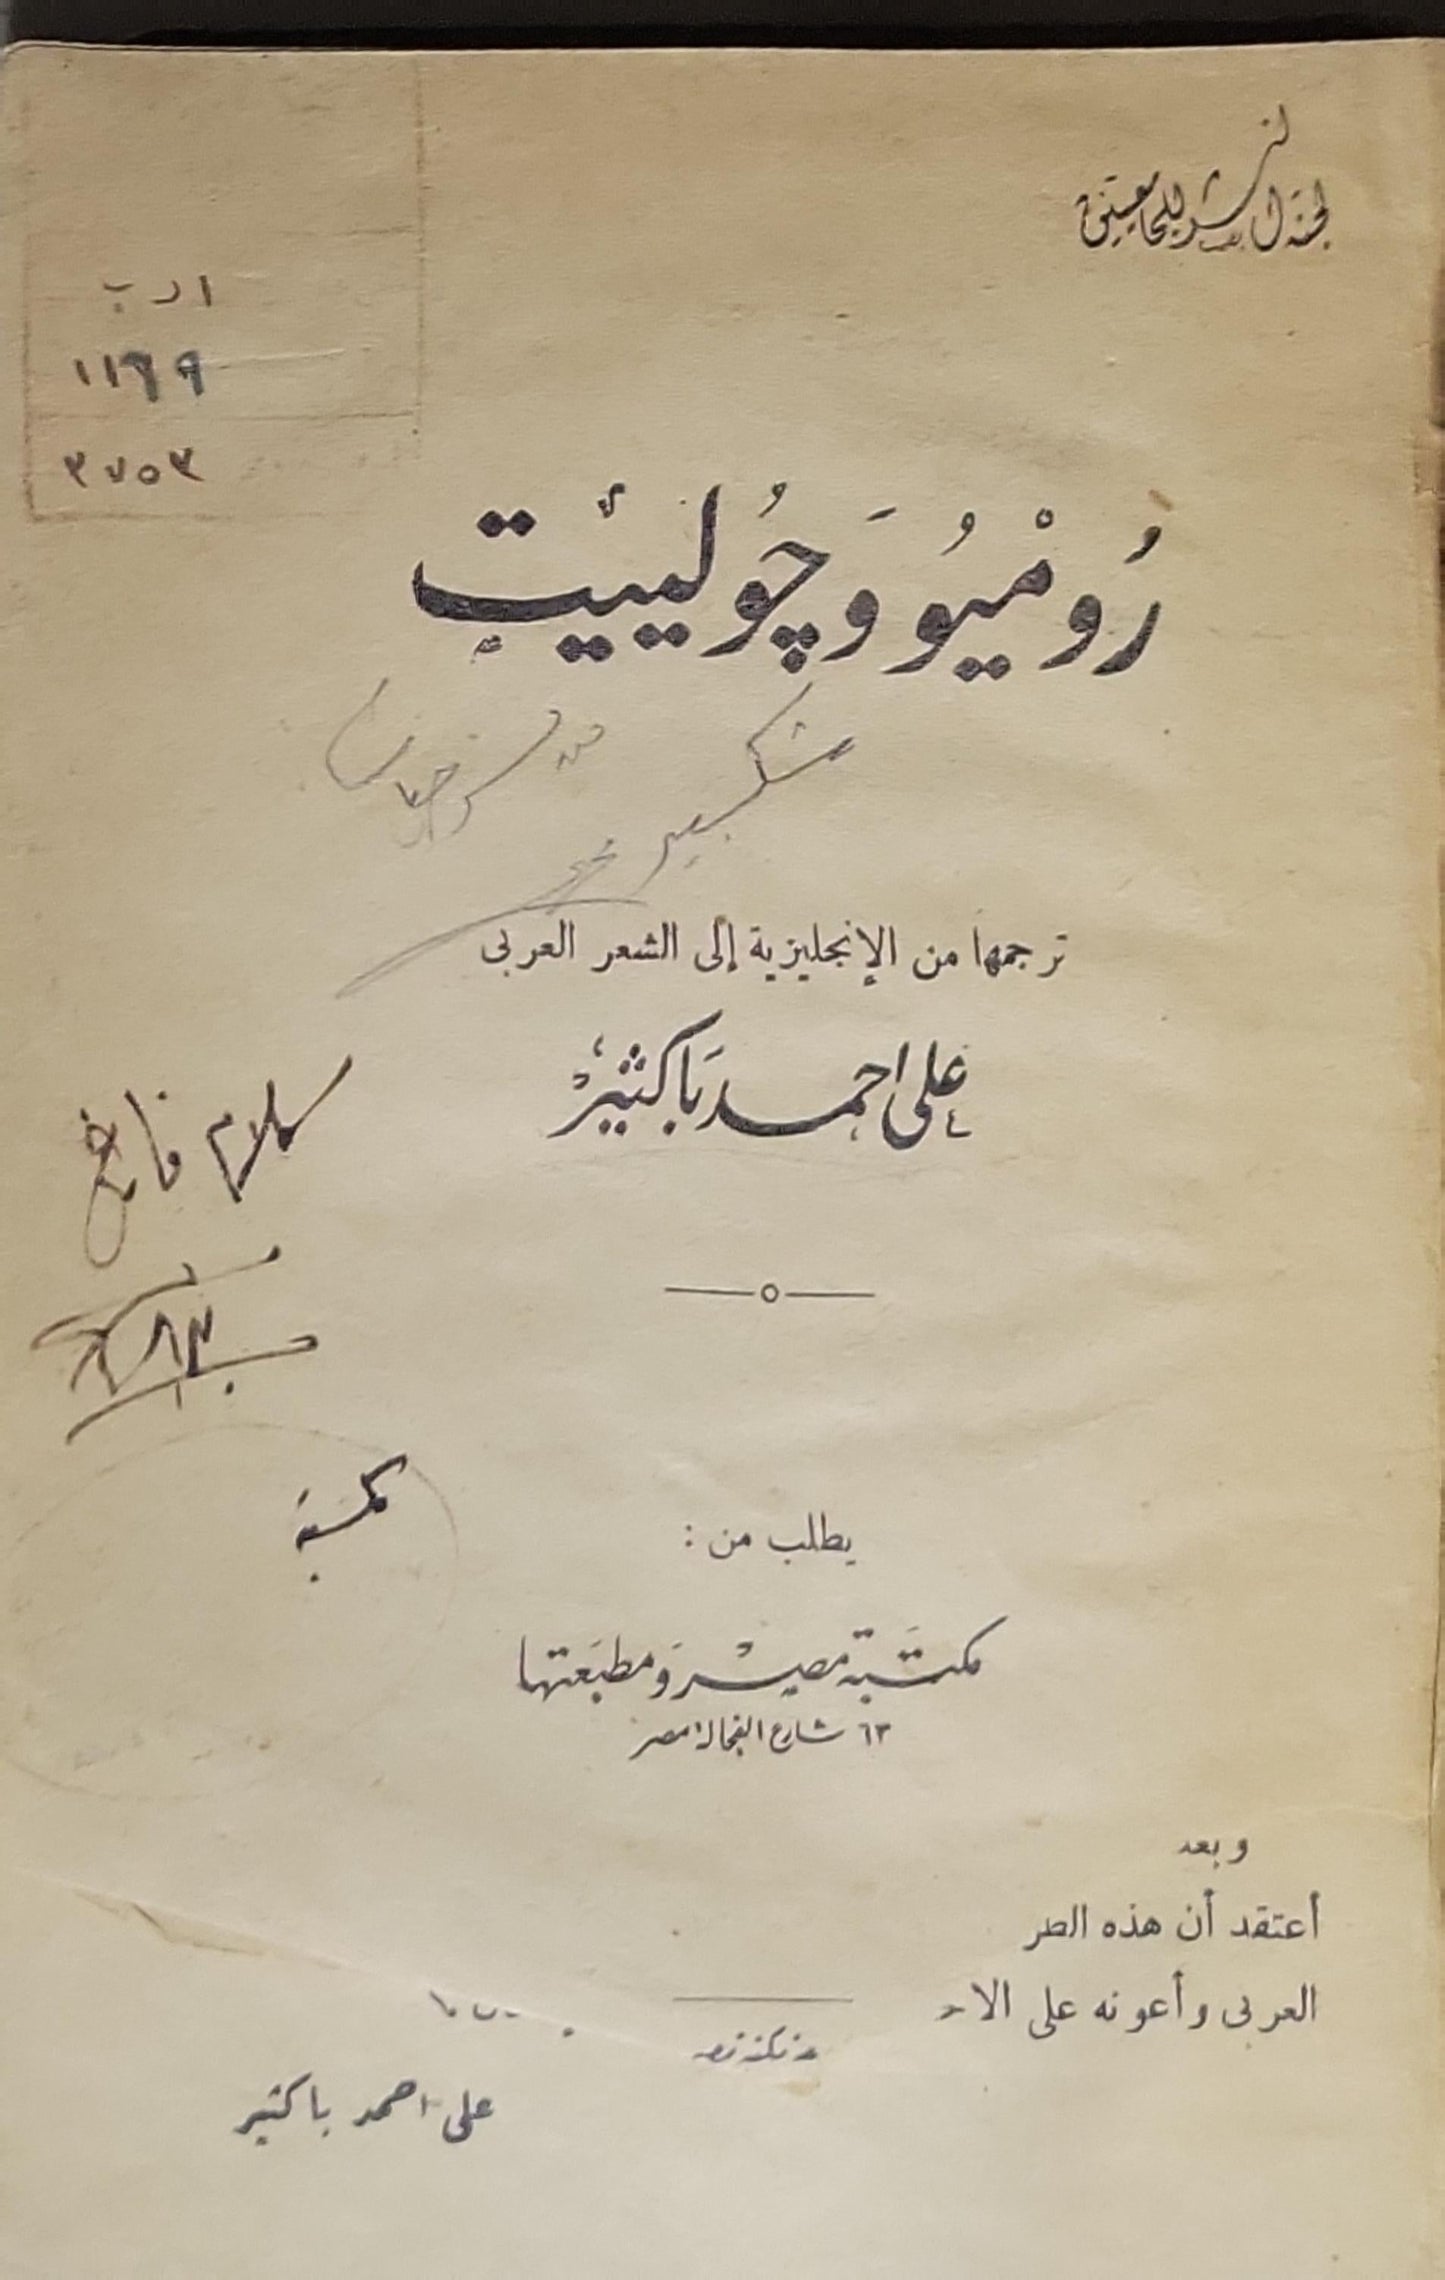 لجنة النشر للجامعيين
ادب
١١٦٩
٣٧٥٣
رُومْيُو وَچُولييت
شكسبير
ترجمها من الإنجليزية إلى الشعر العربى
على احمد باكثير
كلام فارغ
يطلب من :
مكتبة مصر ومطبعتها
٦٣ شارع الفجالة مصر
وبعد
أعتقد أن هذه الطر
العربى وأعونه على الا
على احمد باكثير